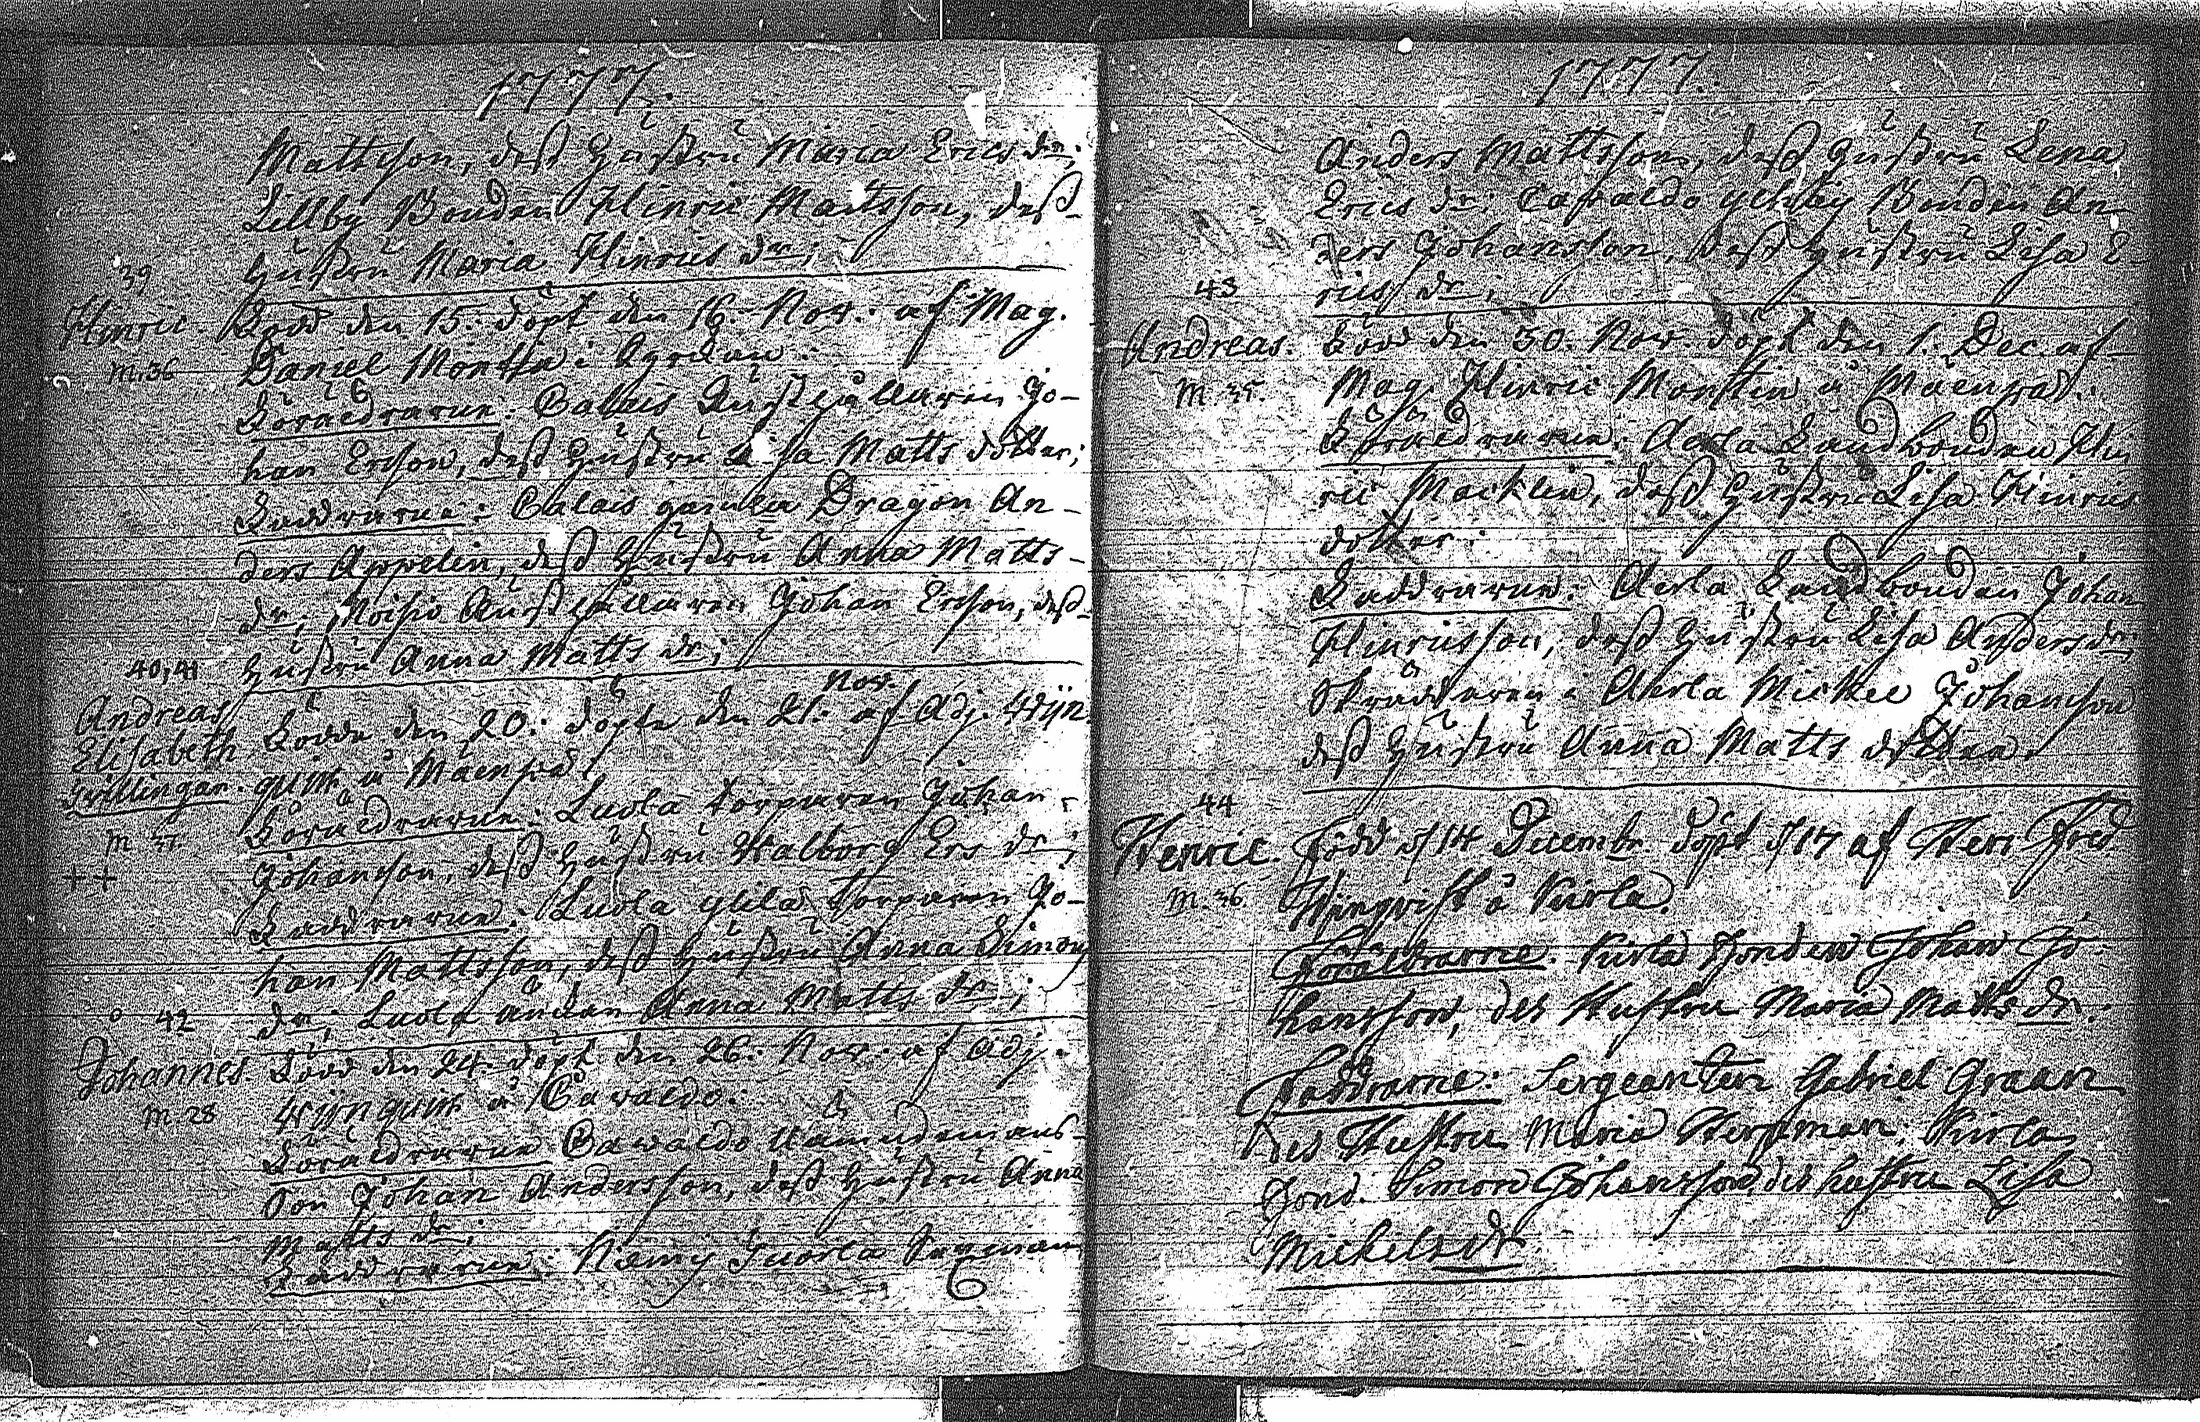 1777.
Mattsson, dess hustru Maria Ericsdr;
Lillby Bonden Hinric Mattsson, dess
hustru Maria Hinrics dr;
39
Hinric. Född den 15. döpt den 16. Nov. af Mag.
Daniel
M. 36
Föräldrarne: Calais
Jo-
han Ersson, dess hustru Lisa Matts dotter;
Faddrarne: Calais gamla Dragon An-
ders Appelin, dess hustru Anna Matts-
dr; Johan Ersson, dess
hustru Anna Matts dr;
40, 41
Andreas
Elisabeth
Tvillingar.
Födde den 20. döpte den 21. Nov. af Adj. Wijn-
quist i
M 37.
Föräldrarne: Luola Torparen Johan
Johansson, dess hustru Walborg Ers dr;
++
Faddrarne: Luola Torparen Jo-
han Mattsson, dess hustru Anna Simons
dr; Luola Anna Matts dr;
42
Johannes. Född den 24. döpt den 26. Nov. af Adj.
M. 28
Wijnquist å Cavaldo.
Föräldrarne Cavaldo
Son Johan Andersson, dess hustru Anna
Matts dr;
Faddrarne: Niemj Juorla
1777.
Anders Mattsson, dess hustru Lena
Erics dr; Cavaldo Bonden An-
ders Johansson, dess hustru Lisa E-
rics dr;
43
Andreas. Född den 30. Nov. döpt den 1. Dec. af
M. 35.
Mag. Hinric
Föräldrarne: Aerla Landbonden Hin
ric dess hustru Lisa Hinrics
dotter.
Faddrarne: Aerla Landbonden Johan
Hinricsson, dess hustru Lisa Andersdr;
Skräddaren i Aerla Mickel Johansson
dess hustru Anna Matts dotter.
44
Henric. Född d 14 Decembr döpt d 17 af Herr Fred.
M. 36
Winqvist å Kurla.
Föräldrarne: Kurla Bonden Johan Jo-
hansson, des Hustru Maria Matts dr.
Faddrarne: Sergeanten Gabriel Graan
des Hustru Maria Kurla
Bond. Simon Johansson, des hustru Lisa
Mickelsdr.